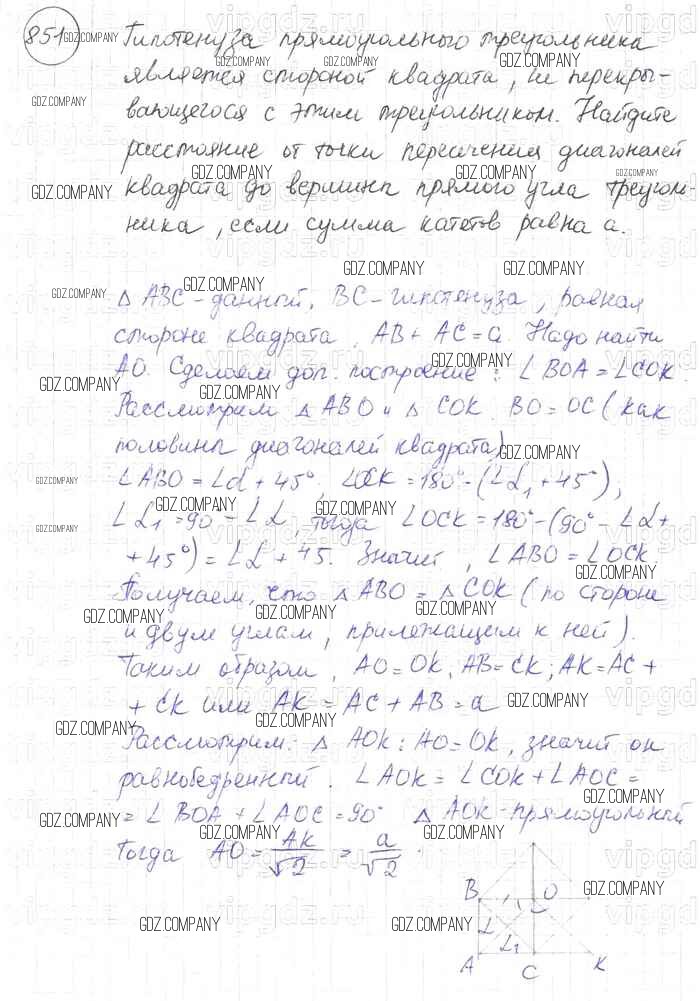 851
Гипотенуза прямоугольного треугольника
является стороной квадрата, не перекры-
вающегося с этим треугольником. Найдите
расстояние от точки пересечения диагоналей
квадрата до вершины прямого угла треуголь-
ника, если сумма катетов равна a.
△ ABC - данный, BC - гипотенуза, равная
стороне квадрата, AB + AC = a. Надо найти
AO. Сделаем доп. построение: ∠BOA = ∠COK.
Рассмотрим △ ABO и △ COK. BO = OC (как
половины диагоналей квадрата)
∠ABO = ∠α + 45°, ∠OCK = 180° - (∠α₁ + 45°),
∠α₁ = 90 - ∠α, тогда ∠OCK = 180° - (90° - ∠α +
+ 45°) = ∠α + 45. Значит, ∠ABO = ∠OCK
Получаем, что △ ABO = △ COK (по стороне
и двум углам, прилежащим к ней).
Таким образом, AO = OK, AB = CK; AK = AC +
+ CK или AK = AC + AB = a
Рассмотрим △ AOK: AO = OK, значит он
равнобедренный. ∠AOK = ∠COK + ∠AOC =
= ∠BOA + ∠AOC = 90° △ AOK - прямоугольный
Тогда AO = AK/√2 = a/√2.
B O
α α₁
A C K
GDZ.COMPANY
vipgdz.ru